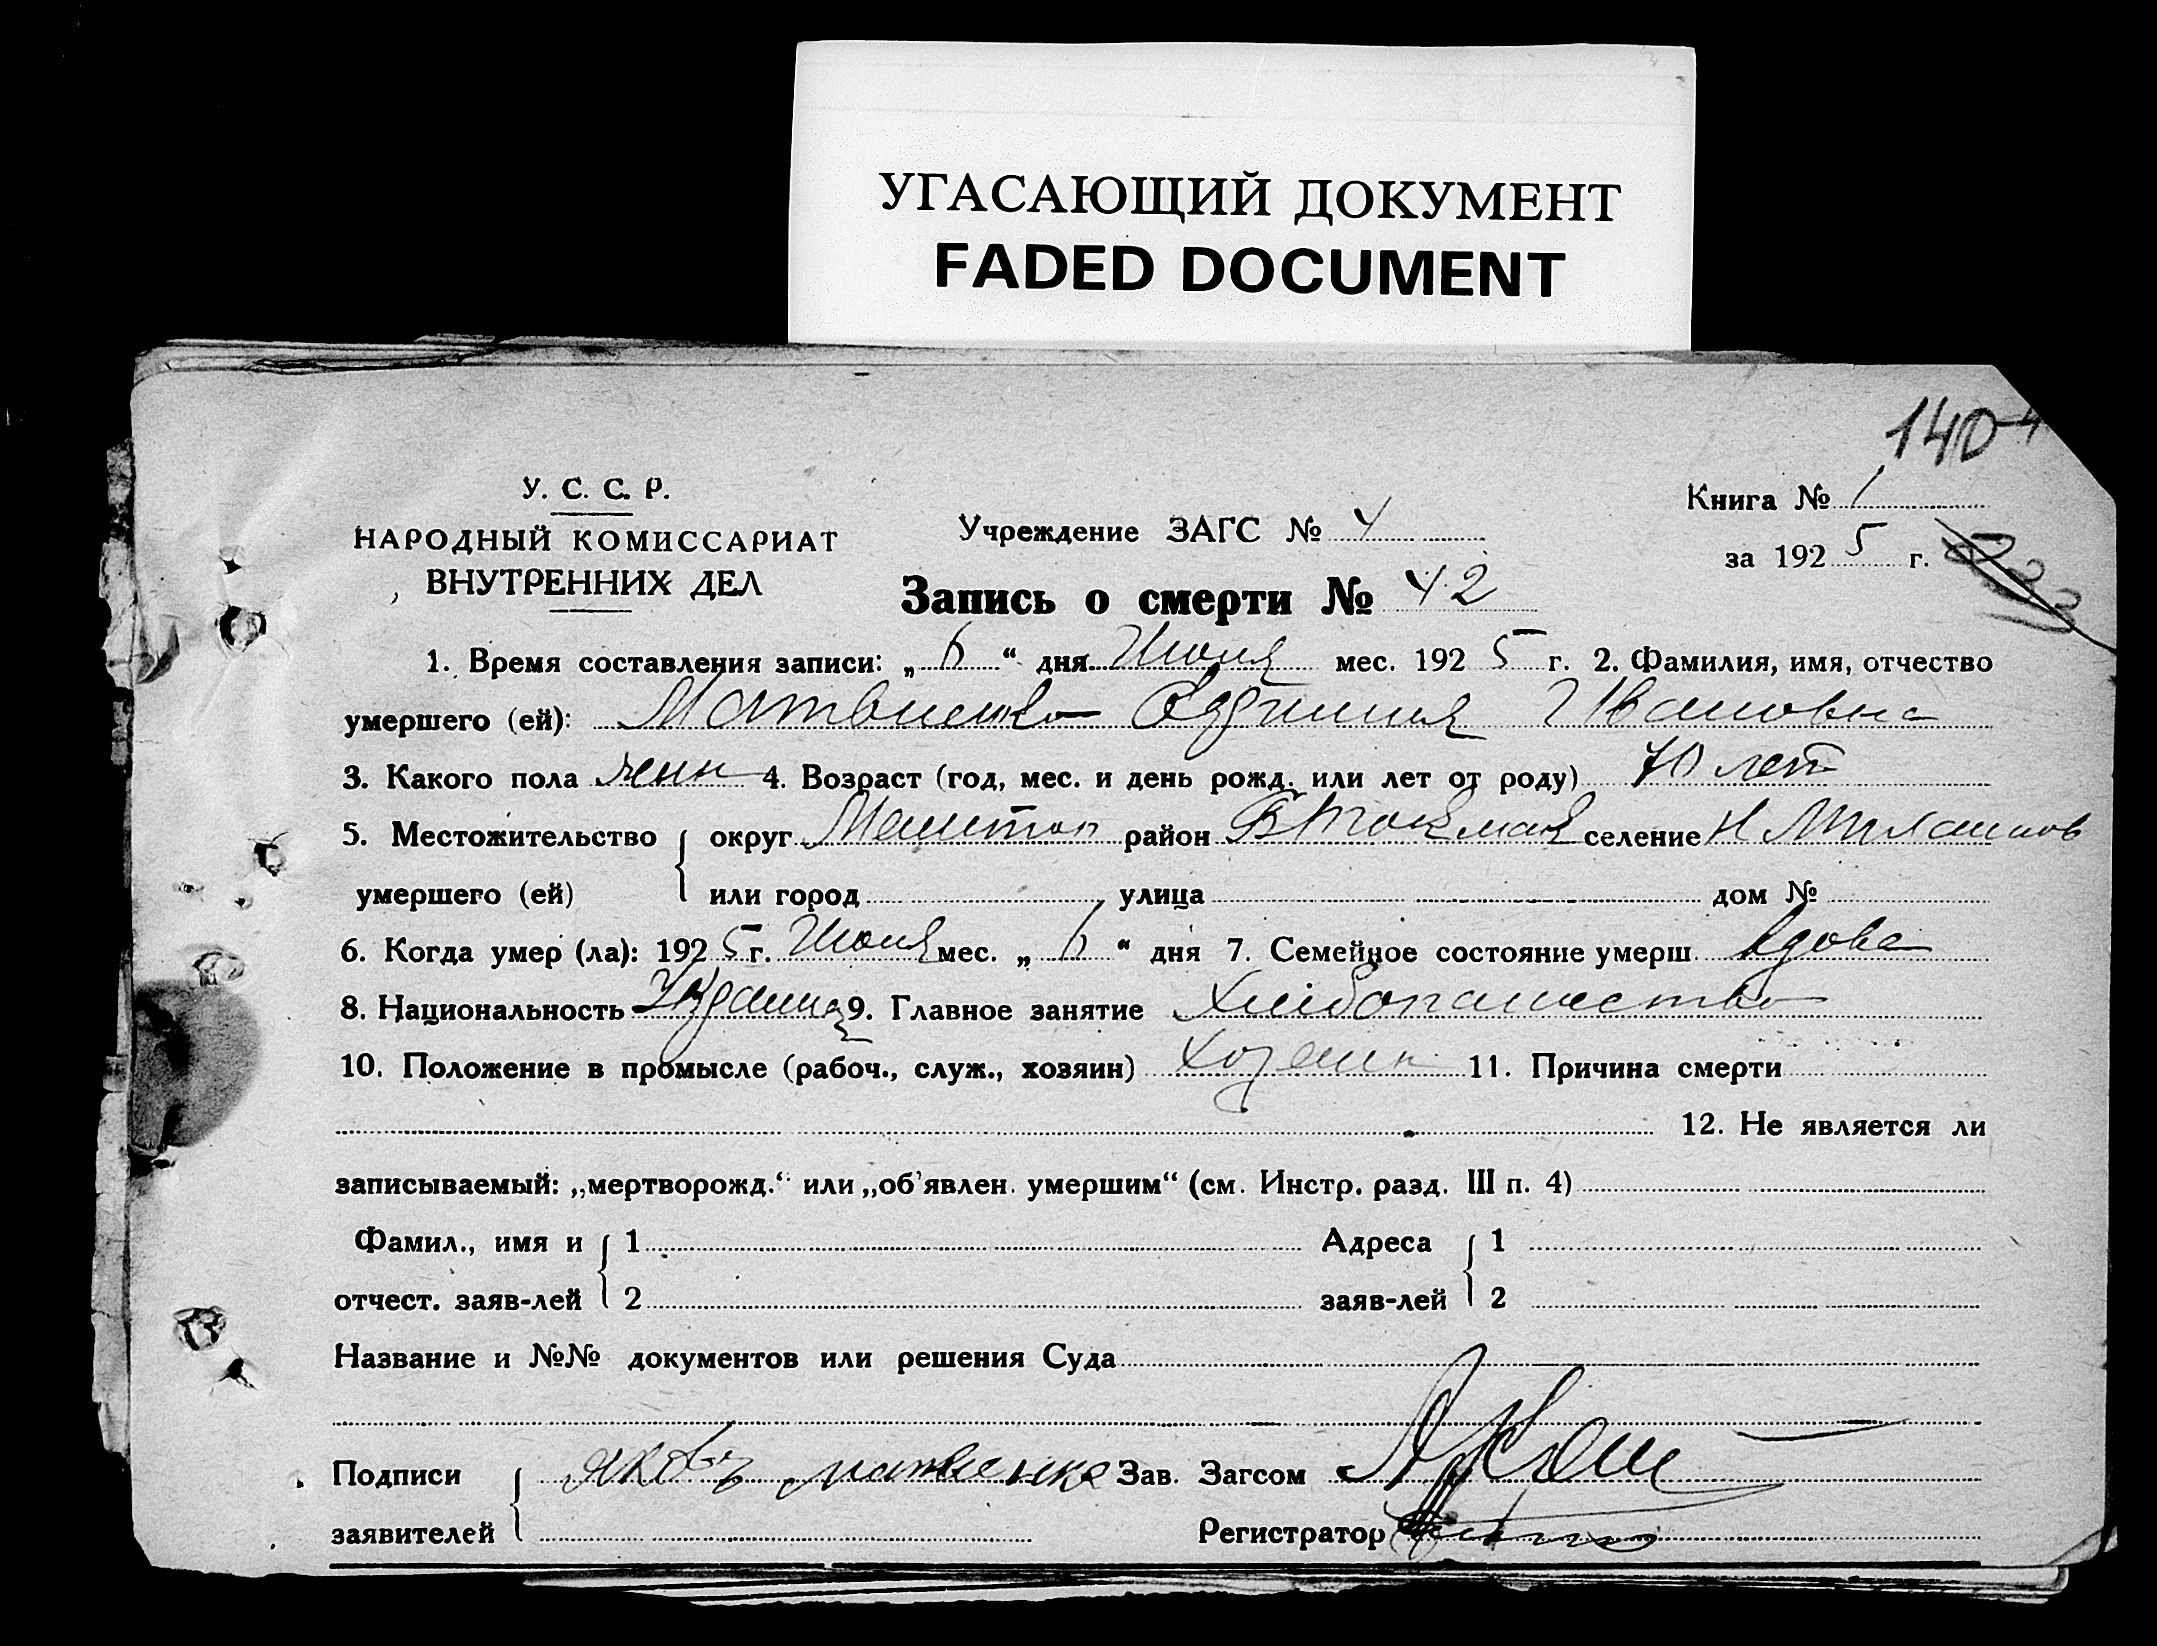 УГАСАЮЩИЙ ДОКУМЕНТ
FADED DOCUMENT
140
У. С. С. Р.
НАРОДНЫЙ КОМИССАРИАТ
ВНУТРЕННИХ ДЕЛ
Учреждение ЗАГС № 4
Книга № 1
за 1925 г.
Запись о смерти № 42
1. Время составления записи: „ 6 “ дня Июля мес. 1925 г. 2. Фамилия, имя, отчество
умершего (ей): Матвиенко Ивановна
3. Какого пола женн 4. Возраст (год, мес. и день рожд. или лет от роду) 70 лет
5. Местожительство округ Мелитоп район Б Токмак селение Н
умершего (ей) или город улица дом №
6. Когда умер (ла): 1925 г. Июля мес. „ 6 “ дня 7. Семейное состояние умерш. вдова
8. Национальность 9. Главное занятие Хлебопашество
10. Положение в промысле (рабоч., служ., хозяин) Хозяин 11. Причина смерти
12. Не является ли
записываемый: „мертворожд.“ или „об'явлен. умершим“ (см. Инстр. разд. III п. 4)
Фамил., имя и 1 Адреса 1
отчест. заяв-лей 2 заяв-лей 2
Название и №№ документов или решения Суда
Подписи Яковъ Матвиенко Зав. Загсом
заявителей Регистратор